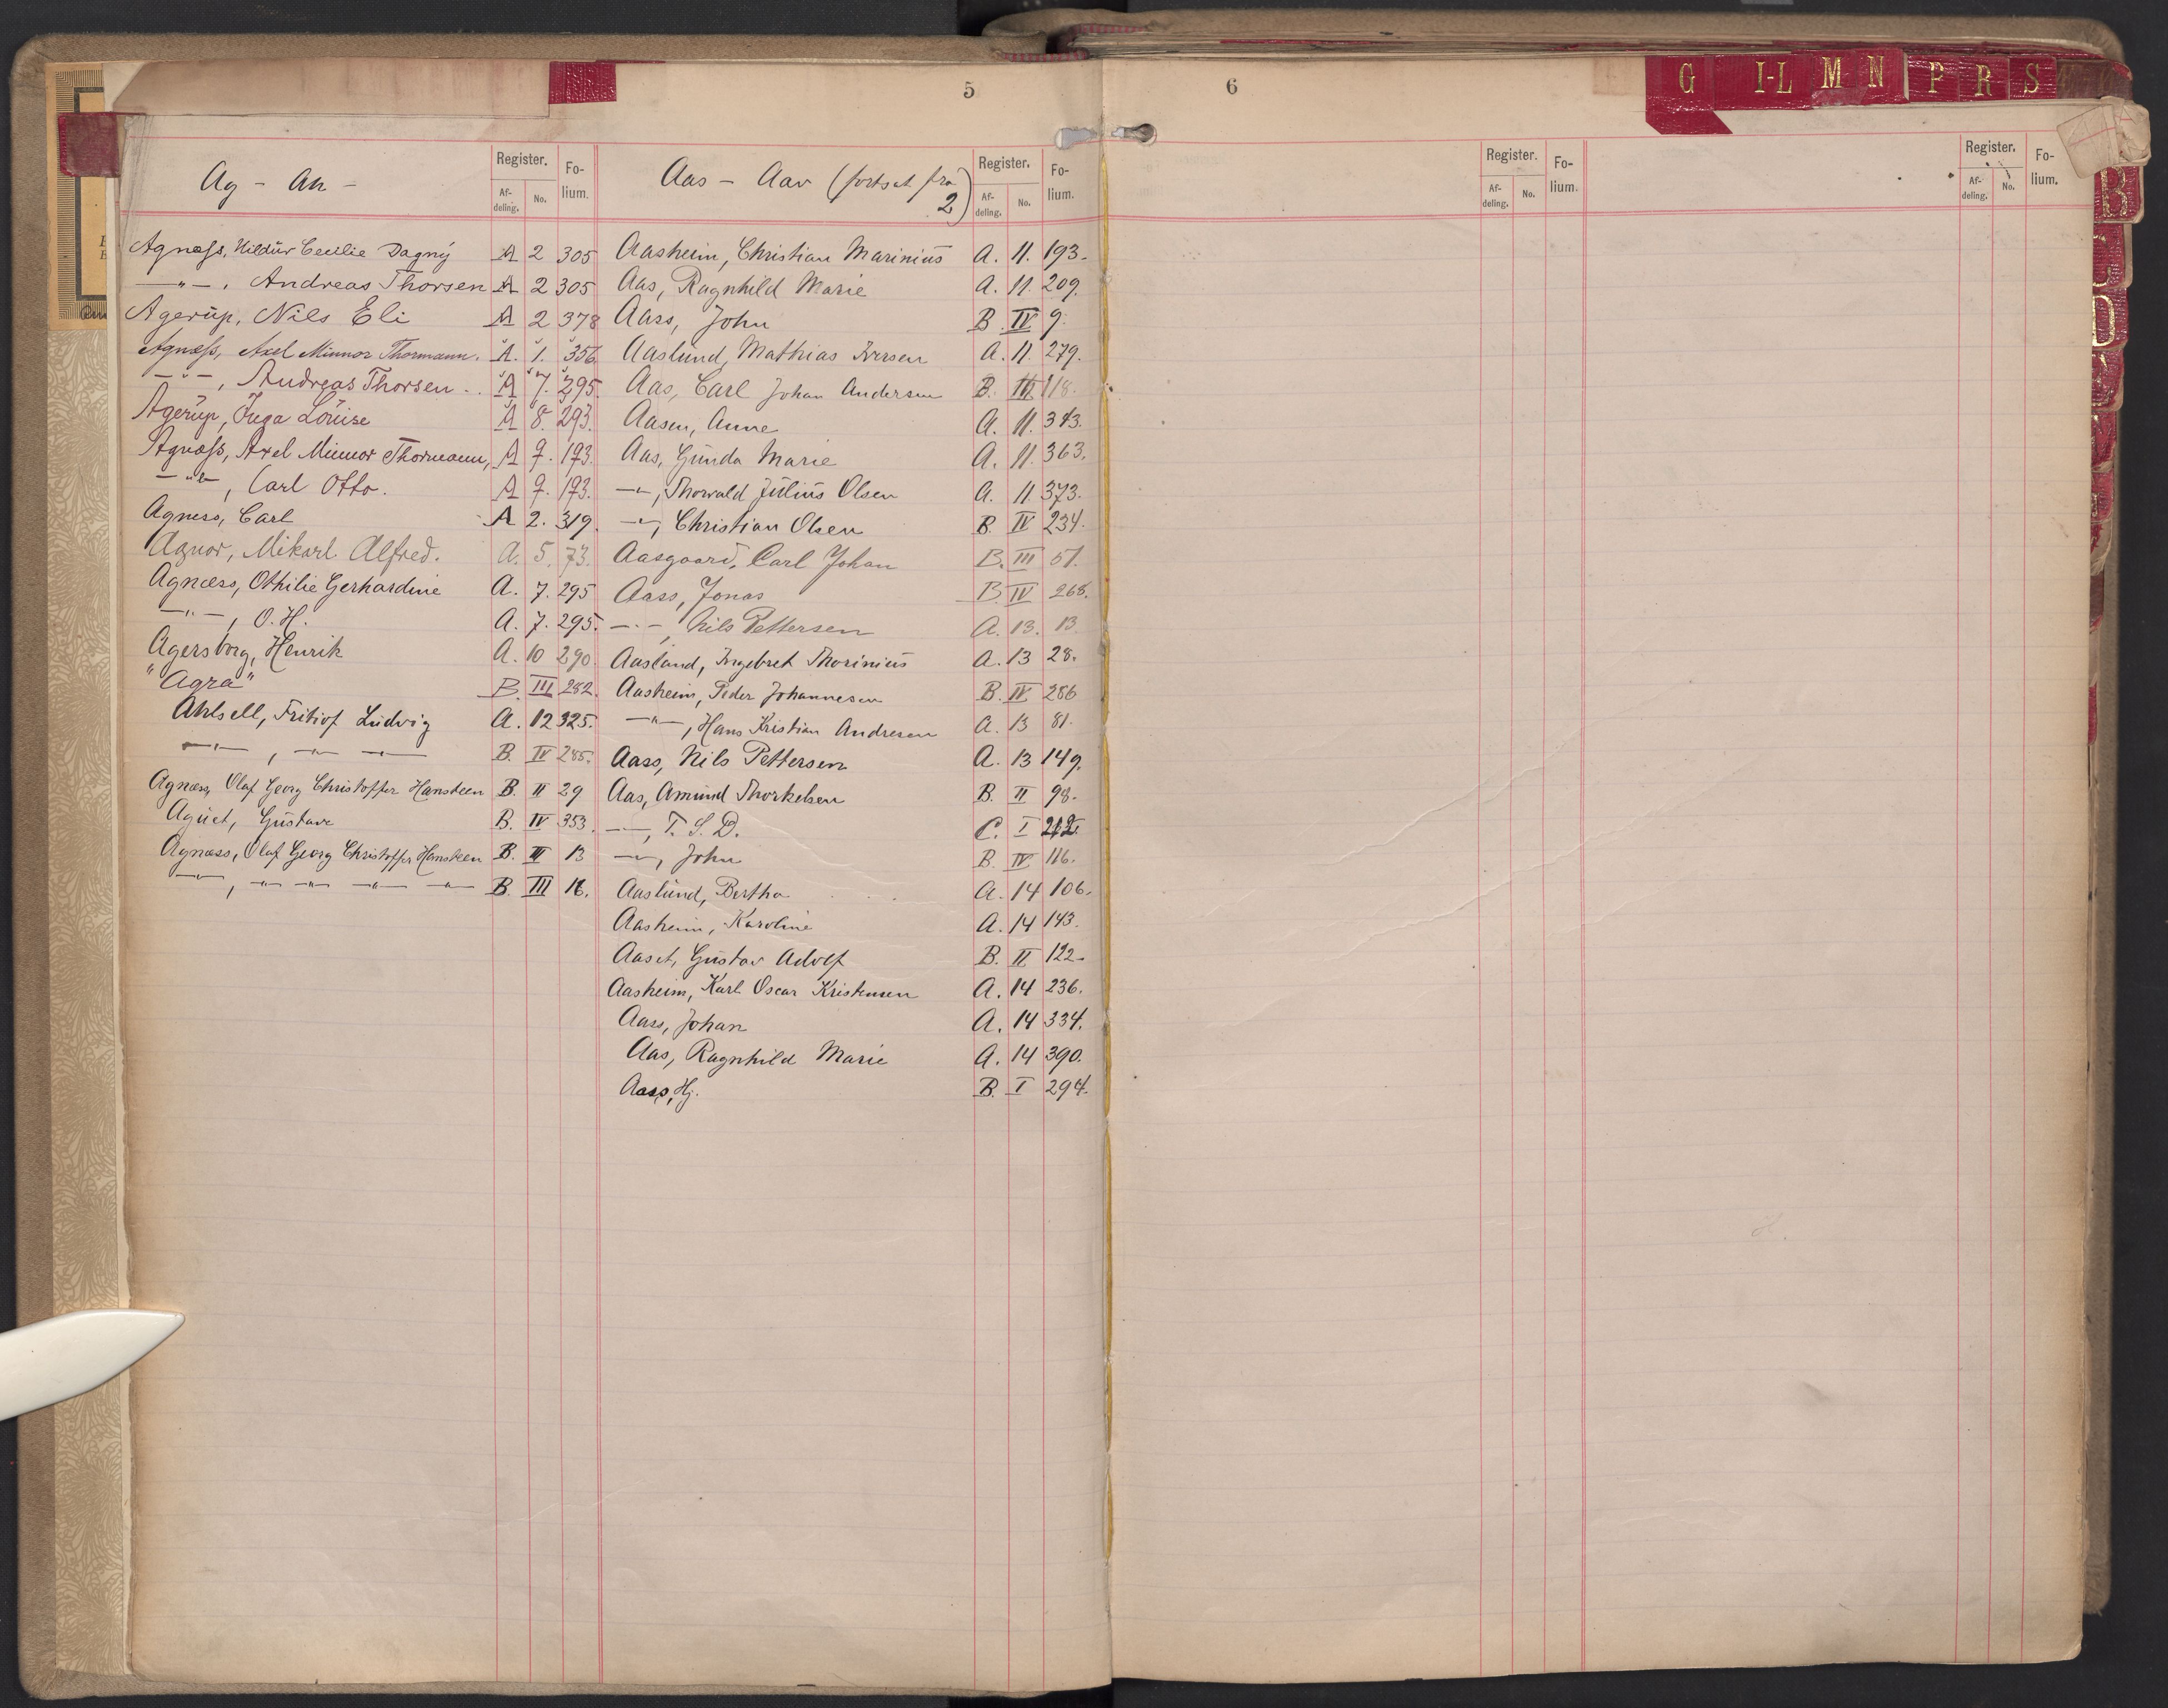 5
Ag - Ah -
Register.
Af-deling.
No.
Fo-lium.
Agnæss, Hildur Cecilie Dagny A 2 305
—"— , Andreas Thorsen A 2 305
Agerup, Nils Eli A 2 378
Agnæss, Axel Minnor Thormann. A. 1. 356.
—"— , Andreas Thorsen . . A 7. 295.
Agerup, Inga Louise A 8. 293.
Agnæss, Axel Minnor Thormann, A 9. 193.
—"— , Carl Otto. A 9. 193.
Agness, Carl A 2. 319.
Agnor, Mikarl Alfred. A. 5. 73.
Agnæss, Othilie Gerhardine A. 7. 295
—"— , O. H. A. 7. 295.
Agersborg, Henrik A. 10 290
"Agra" B. III 282.
Ahlsell, Fritiof Ludvig A. 12 325.
—"— , —"— —"— B. IV 285.
Agnæss, Olaf Georg Christoffer Hansteen B. II 29
Aguet, Gustave B. IV 353.
Agnæss, Olaf Georg Christoffer Hansteen B. III 13
—"— , —"— —"— —"— —"— B. III 16.
Aas - Aav (fortsat fra 2)
Register.
Af-deling.
No.
Fo-lium.
Aasheim, Christian Marinius A. 11. 193.
Aas, Ragnhild Marie A. 11. 209.
Aass, John B. IV 9.
Aaslund, Mathias Iversen A. 11. 279.
Aas, Carl Johan Andersen B. III 118.
Aasen, Anne A. 11. 343.
Aas, Gunda Marie A. 11. 363.
—"—, Thorvald Julius Olsen A. 11 373.
—"—, Christian Olsen B. IV 234.
Aasgaard, Carl Johan B. III 51.
Aass, Jonas B. IV 268.
—"— , Nils Pettersen A. 13. 13.
Aasland, Ingebret Thorinius A. 13 28.
Aasheim, Peder Johannesen B. IV. 286
—"—, Hans Kristian Andresen A. 13 81.
Aass, Nils Pettersen A. 13 149.
Aas, Amund Thorkelsen B. II 98.
—"—, T. S. D. C. I 212.
—"—, John B. IV. 116.
Aaslund, Bertha A. 14 106.
Aasheim, Karoline A. 14 143.
Aaset, Gustav Adolf B. II 122.
Aasheim, Karl Oscar Kristensen A. 14 236.
Aass, Johan A. 14 334.
Aas, Ragnhild Marie A. 14 390.
Aass, Hj. B. I 294.
6
Register.
Af-deling.
No.
Fo-lium.
Register.
Af-deling.
No.
Fo-lium.
G
I-L
M-N
P
R
S
B
D